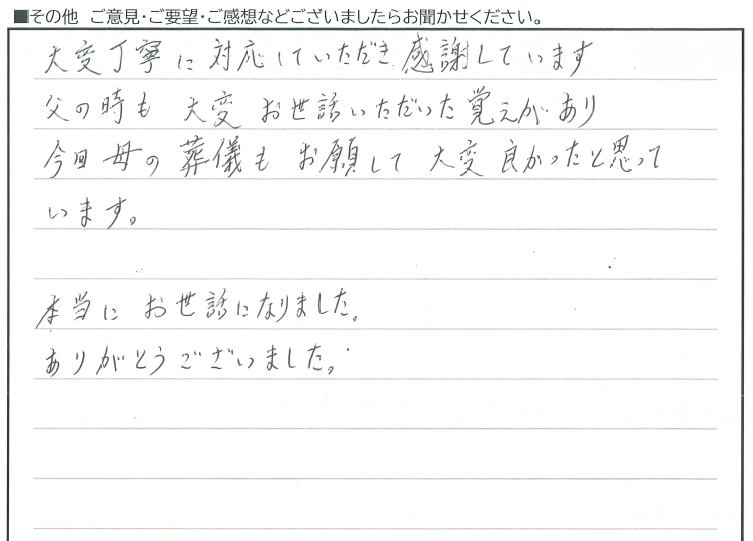 ■その他 ご意見・ご要望・ご感想などございましたらお聞かせください。
大変丁寧に対応していただき感謝しています
父の時も 大変 お世話いただいた覚えがあり
今回 母の 葬儀も お願して 大変 良かったと思って
います。
本当に お世話になりました。
ありがとうございました。